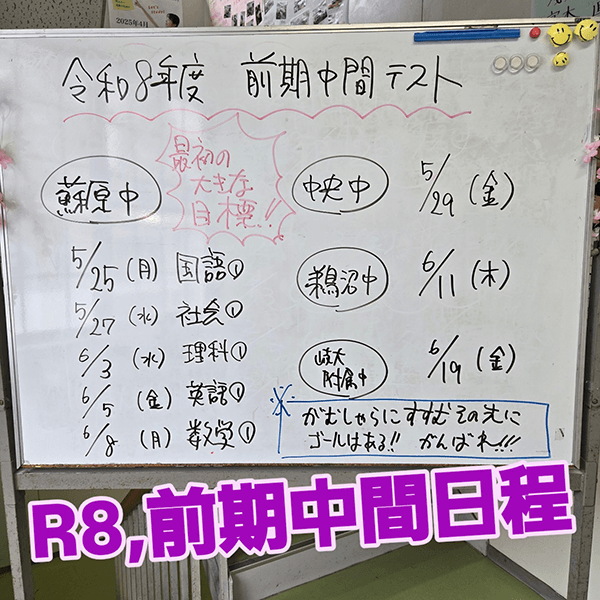 2025年4月
令和8年度 前期中間テスト
最初の
大きな
目標!!
蘇原中
5/25(月) 国語①
5/27(水) 社会①
6/3(水) 理科①
6/5(金) 英語①
6/8(月) 数学①
中央中 5/29(金)
鵜沼中 6/11(木)
岐大
附属中
6/19(金)
※
がむしゃらにすすむその先に
ゴールはある!! がんばれ!!!
R8,前期中間日程